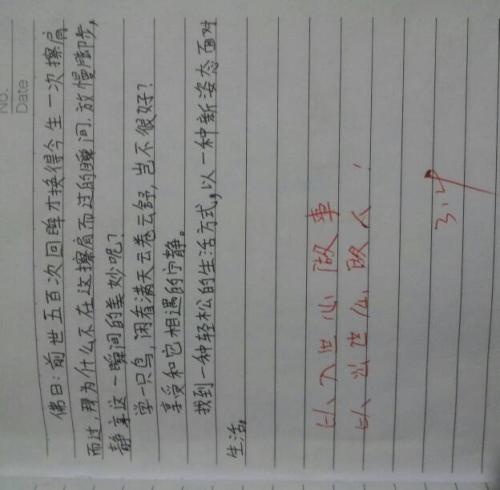 No.
Date
佛曰：前世五百次回眸才换得今生一次擦肩
而过，那为什么不在这擦肩而过的瞬间，放慢脚步，
静享这一瞬间的美妙呢？
学一只鸟，闲看满天云卷云舒，岂不很好？
享受和它相遇的宁静。
找到一种轻松的生活方式，以一种新姿态面对
生活。
以入世心做事
以出世心做人．
3.4